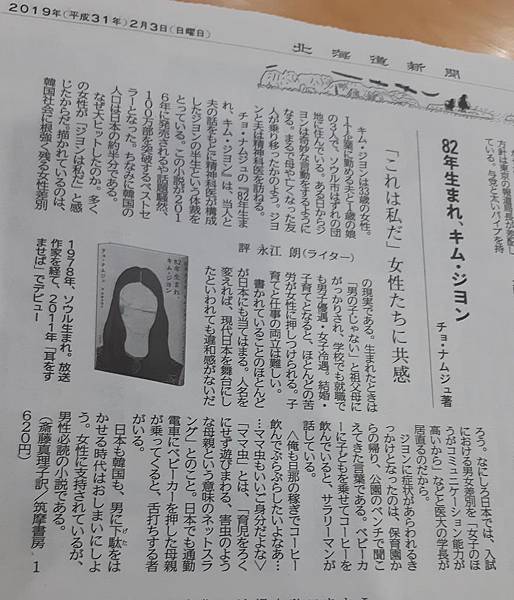 2019年(平成31年)2月3日(日曜日)
北海道新聞
方針は東京の報道局長が差配し
ている。与党と太いパイプを持
82年生まれ、キム・ジヨン
チョ・ナムジュ著
「これは私だ」女性たちに共感
評 永江 朗(ライター)
キム・ジヨンは33歳の女性。
IT企業に勤める夫と1歳の娘
の3人で、ソウル市はずれの団
地に住んでいる。ある日からジ
ヨンは奇妙な言動をするように
なる。まるで母や亡くなった友
人が乗り移ったかのよう。ジヨ
ンと夫は精神科医を訪ねる。
チョ・ナムジュの『82年生ま
れ、キム・ジヨン』は、当人と
夫の話をもとに精神科医が構成
したジヨンの半生という体裁を
とっている。この小説が201
6年に発売されるや話題騒然、
100万部を突破するベストセ
ラーとなった。ちなみに韓国の
人口は日本の約半分である。
なぜ大ヒットしたのか。多く
の女性が「ジヨンは私だ」と感
じたからだ。描かれているのは、
韓国社会に根強く残る女性差別
の現実である。生まれたときは
「男の子じゃない」と祖父母に
がっかりされ、学校でも就職で
も男子優遇・女子冷遇。結婚・
子育てとなると、ほとんどの苦
労が女性に押しつけられる。子
育てと仕事の両立は難しい。
書かれていることのほとんど
が日本にも当てはまる。人名を
変えれば、現代日本を舞台にし
たといわれても違和感がないだ
ろう。なにしろ日本では、入試
における男女差別を「女子のほ
うがコミュニケーション能力が
高いから」などと医大の学長が
居直るのだから。
ジヨンに症状があらわれるき
っかけとなったのは、保育園か
らの帰り、公園のベンチで聞こ
えてきた言葉である。ベビーカ
ーに子どもを乗せてコーヒーを
飲んでいると、サラリーマンが
話している。
〈俺も旦那の稼ぎでコーヒー
飲んでぶらぶらしたいよなあ…
…ママ虫もいいご身分だよな〉
「ママ虫」とは、「育児をろく
にせず遊びまわる、害虫のよう
な母親という意味のネットスラ
ング」とのこと。日本でも通勤
電車にベビーカーを押した母親
が乗ってくると、舌打ちする者
がいる。
日本も韓国も、男に下駄をは
げた
かせる時代はおしまいにしよ
う。女性に支持されているが、
男性必読の小説である。
(斎藤真理子訳／筑摩書房 1
620円)
82年生まれ、
キム・ジヨン
チョ・ナムジュ
1978年、ソウル生まれ。放送
作家を経て、2011年「耳をす
ませば」でデビュー